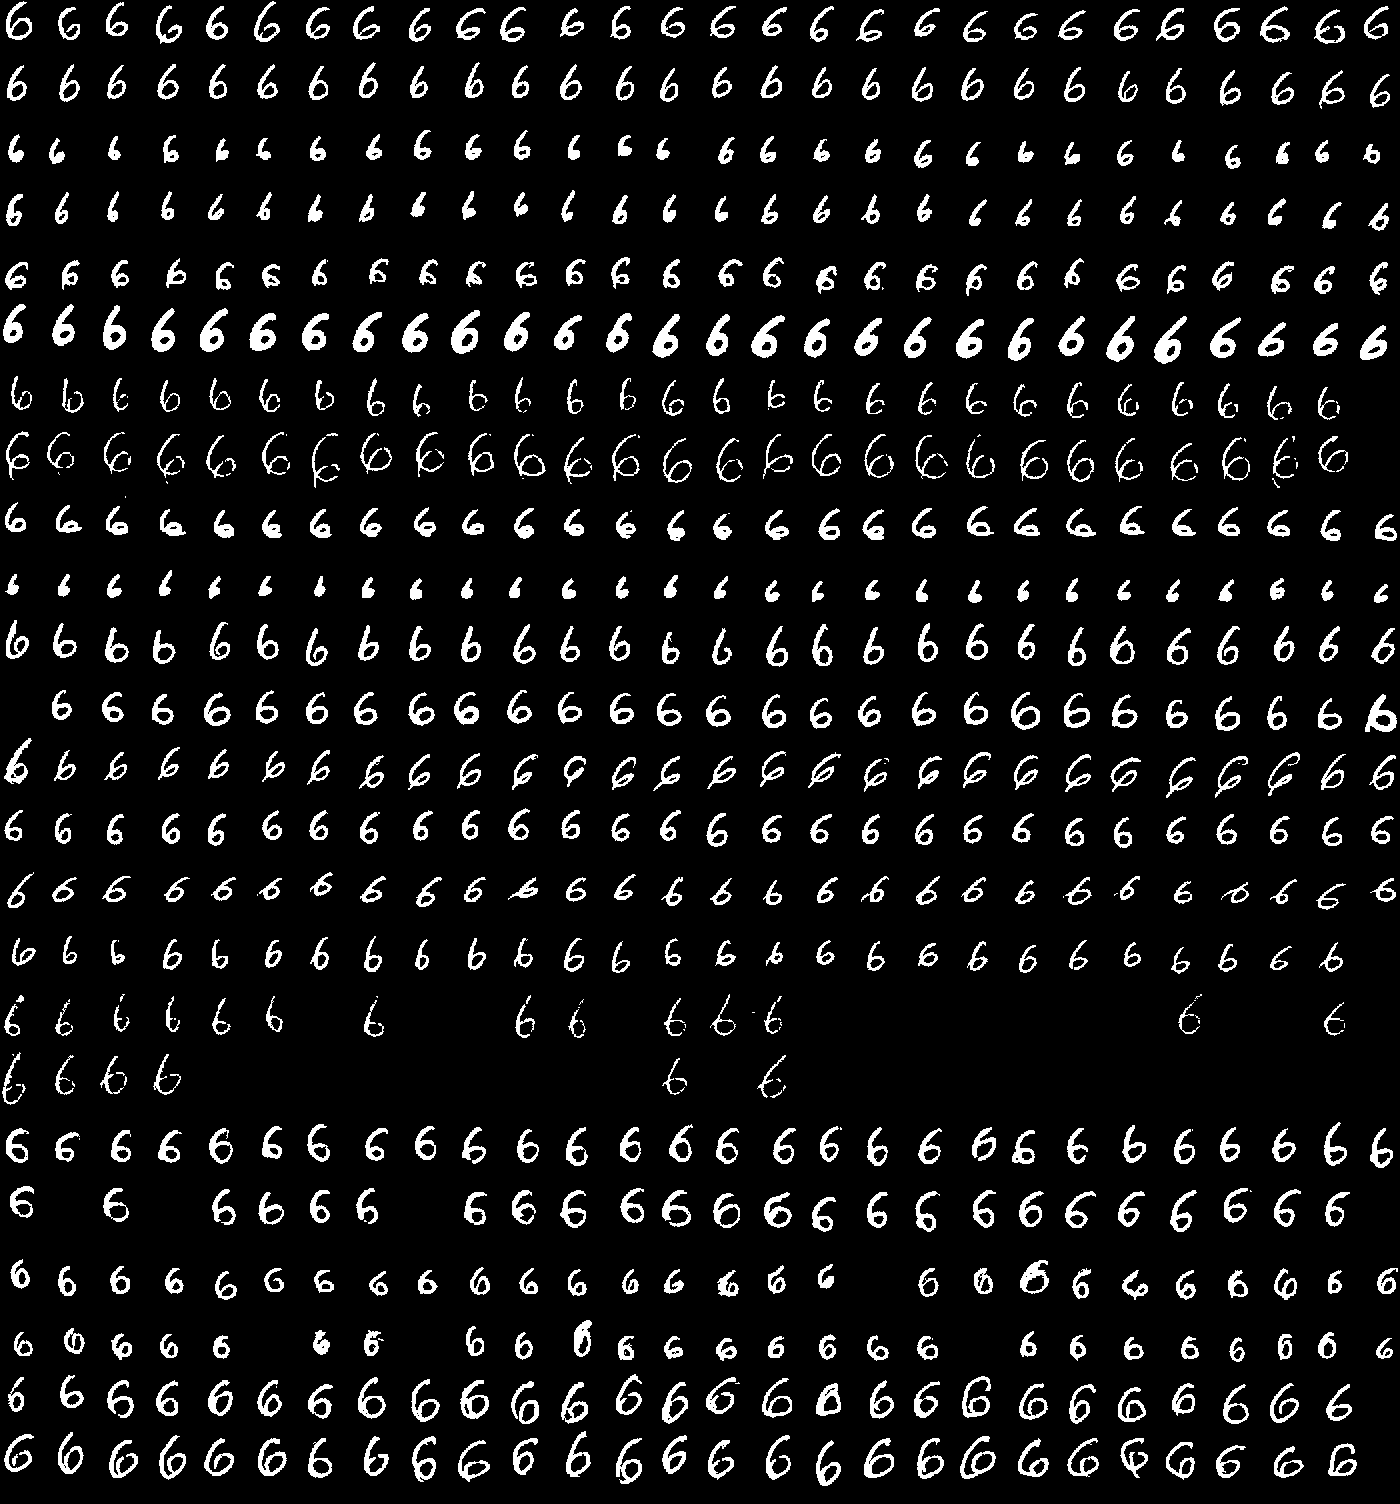 6 6 6 6 6 6 6 6 6 6 6 6 6 6 6 6 6 6 6 6 6 6 6 6 6 6 6 6
6 6 6 6 6 6 6 6 6 6 6 6 6 6 6 6 6 6 6 6 6 6 6 6 6 6 6 6
6 6 6 6 6 6 6 6 6 6 6 6 6 6 6 6 6 6 6 6 6 6 6 6 6 6 6 6
6 6 6 6 6 6 6 6 6 6 6 6 6 6 6 6 6 6 6 6 6 6 6 6 6 6 6 6
6 6 6 6 6 6 6 6 6 6 6 6 6 6 6 6 6 6 6 6 6 6 6 6 6 6 6 6
6 6 6 6 6 6 6 6 6 6 6 6 6 6 6 6 6 6 6 6 6 6 6 6 6 6 6 6
6 6 6 6 6 6 6 6 6 6 6 6 6 6 6 6 6 6 6 6 6 6 6 6 6 6 6
6 6 6 6 6 6 6 6 6 6 6 6 6 6 6 6 6 6 6 6 6 6 6 6 6 6 6
6 6 6 6 6 6 6 6 6 6 6 6 6 6 6 6 6 6 6 6 6 6 6 6 6 6 6 6
6 6 6 6 6 6 6 6 6 6 6 6 6 6 6 6 6 6 6 6 6 6 6 6 6 6 6 6
6 6 6 6 6 6 6 6 6 6 6 6 6 6 6 6 6 6 6 6 6 6 6 6 6 6 6 6
6 6 6 6 6 6 6 6 6 6 6 6 6 6 6 6 6 6 6 6 6 6 6 6 6 6 6
6 6 6 6 6 6 6 6 6 6 6 6 6 6 6 6 6 6 6 6 6 6 6 6 6 6 6 6
6 6 6 6 6 6 6 6 6 6 6 6 6 6 6 6 6 6 6 6 6 6 6 6 6 6 6 6
6 6 6 6 6 6 6 6 6 6 6 6 6 6 6 6 6 6 6 6 6 6 6 6 6 6 6 6
6 6 6 6 6 6 6 6 6 6 6 6 6 6 6 6 6 6 6 6 6 6 6 6 6 6 6
6 6 6 6 6 6 6 6 6 6 6 6 6 6
6 6 6 6 6 6
6 6 6 6 6 6 6 6 6 6 6 6 6 6 6 6 6 6 6 6 6 6 6 6 6 6 6 6
6 6 6 6 6 6 6 6 6 6 6 6 6 6 6 6 6 6 6 6 6 6 6 6
6 6 6 6 6 6 6 6 6 6 6 6 6 6 6 6 6 6 6 6 6 6 6 6 6 6 6
6 6 6 6 6 6 6 6 6 6 6 6 6 6 6 6 6 6 6 6 6 6 6 6 6
6 6 6 6 6 6 6 6 6 6 6 6 6 6 6 6 6 6 6 6 6 6 6 6 6 6 6
6 6 6 6 6 6 6 6 6 6 6 6 6 6 6 6 6 6 6 6 6 6 6 6 6 6 6